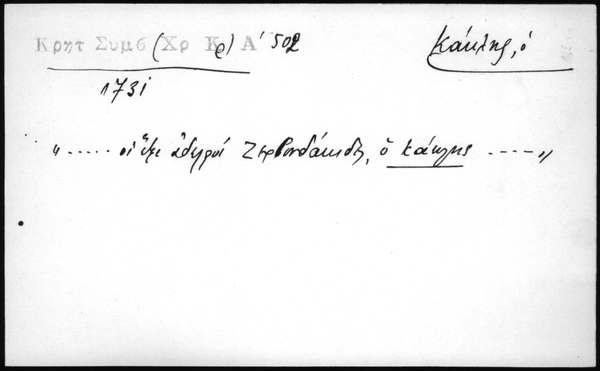 Κρητ Συμβ (Χρ Κρ) Α' 502
Κάκλης, ὁ
1731
"..... οἱ ἕξι ἀδερφοί Ζερβουδάκιδες, ὁ Κάκλης ....."